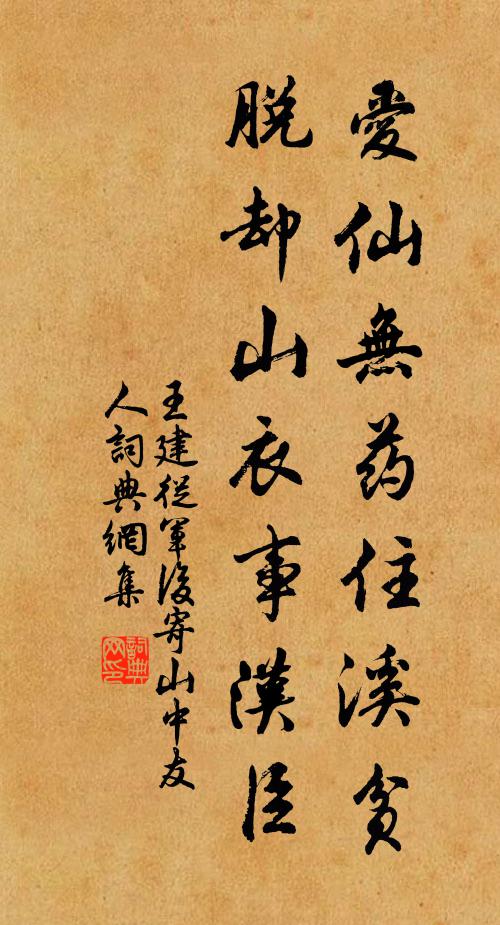 愛仙無药住溪貧
脱却山衣事漢臣
王建從軍後寄山中友
人詞典網集
詞典
网印